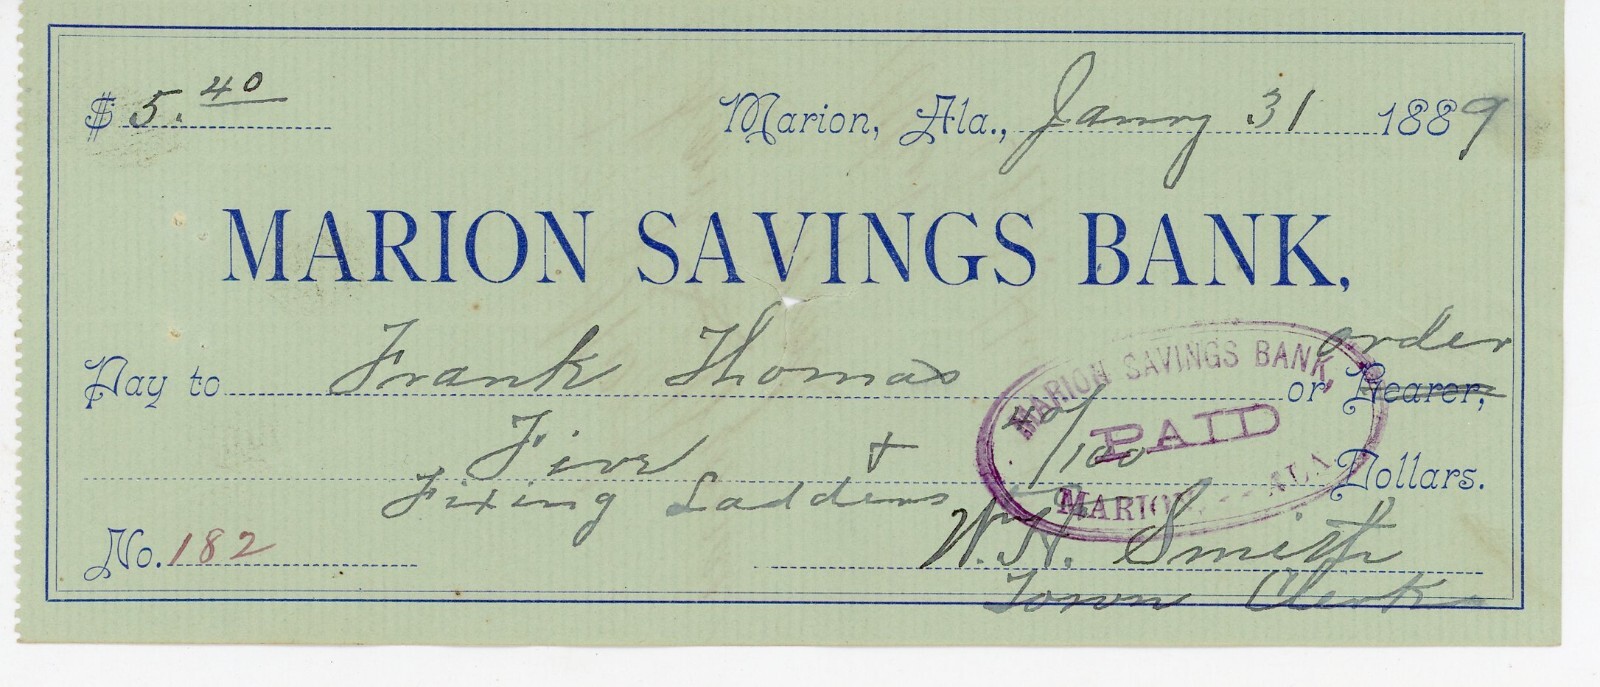 $ 5.40 Marion, Ala., Janury 31 1889
MARION SAVINGS BANK,
order
Pay to Frank Thomas or Bearer,
Five & 40/100 Dollars.
Fixing Ladders
MARION SAVINGS BANK,
PAID
MARION, ALA
No. 182 W. H. Smith
Town Clerk